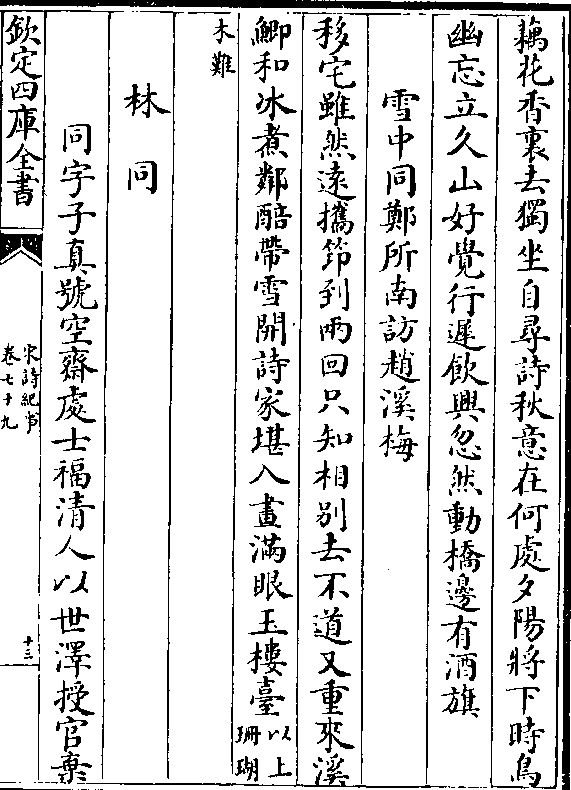 藕花香裏去獨坐自尋詩秋意在何處夕陽將下時鳥
幽忘立久山好覺行遲飲興忽然動橋邊有酒旗
雪中同鄭所南訪趙溪梅
移宅雖然遠攜笻到兩回只知相別去不道又重來溪
鯽和冰煮鄰醅帶雪開詩家堪入畫滿眼玉樓臺以上珊瑚
木難
林同
同字子真號空齋處士福清人以世澤授官棄
欽定四庫全書
宋詩紀事
卷七十九
十三